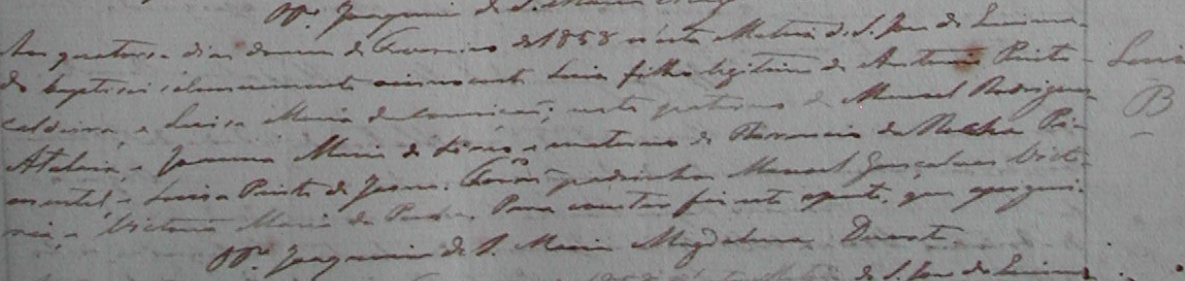 Pe. Joaquim de S. Maria
Aos quatorze dias do mez de Fevereiro de 1858 n'esta Matriz de S. José de
do baptisei solemnemente o innocente Luis filho legitimo de Antonio Pinto
Caldeira, e Luisa Maria da Conceição; neto paterno de Manoel Rodrigues
Atalaia, e Joanna Maria de e materno de Florencio da Rocha Pi-
mentel, e Luisa Pinto de Jesus. Forão padrinhos Manoel Gonçalves Victo-
ria, e Victoria Maria da Para constar fiz este assento, que assignei.
Pe. Joaquim de S. Maria Magdalena Duarte
de S. José de
Luis
B